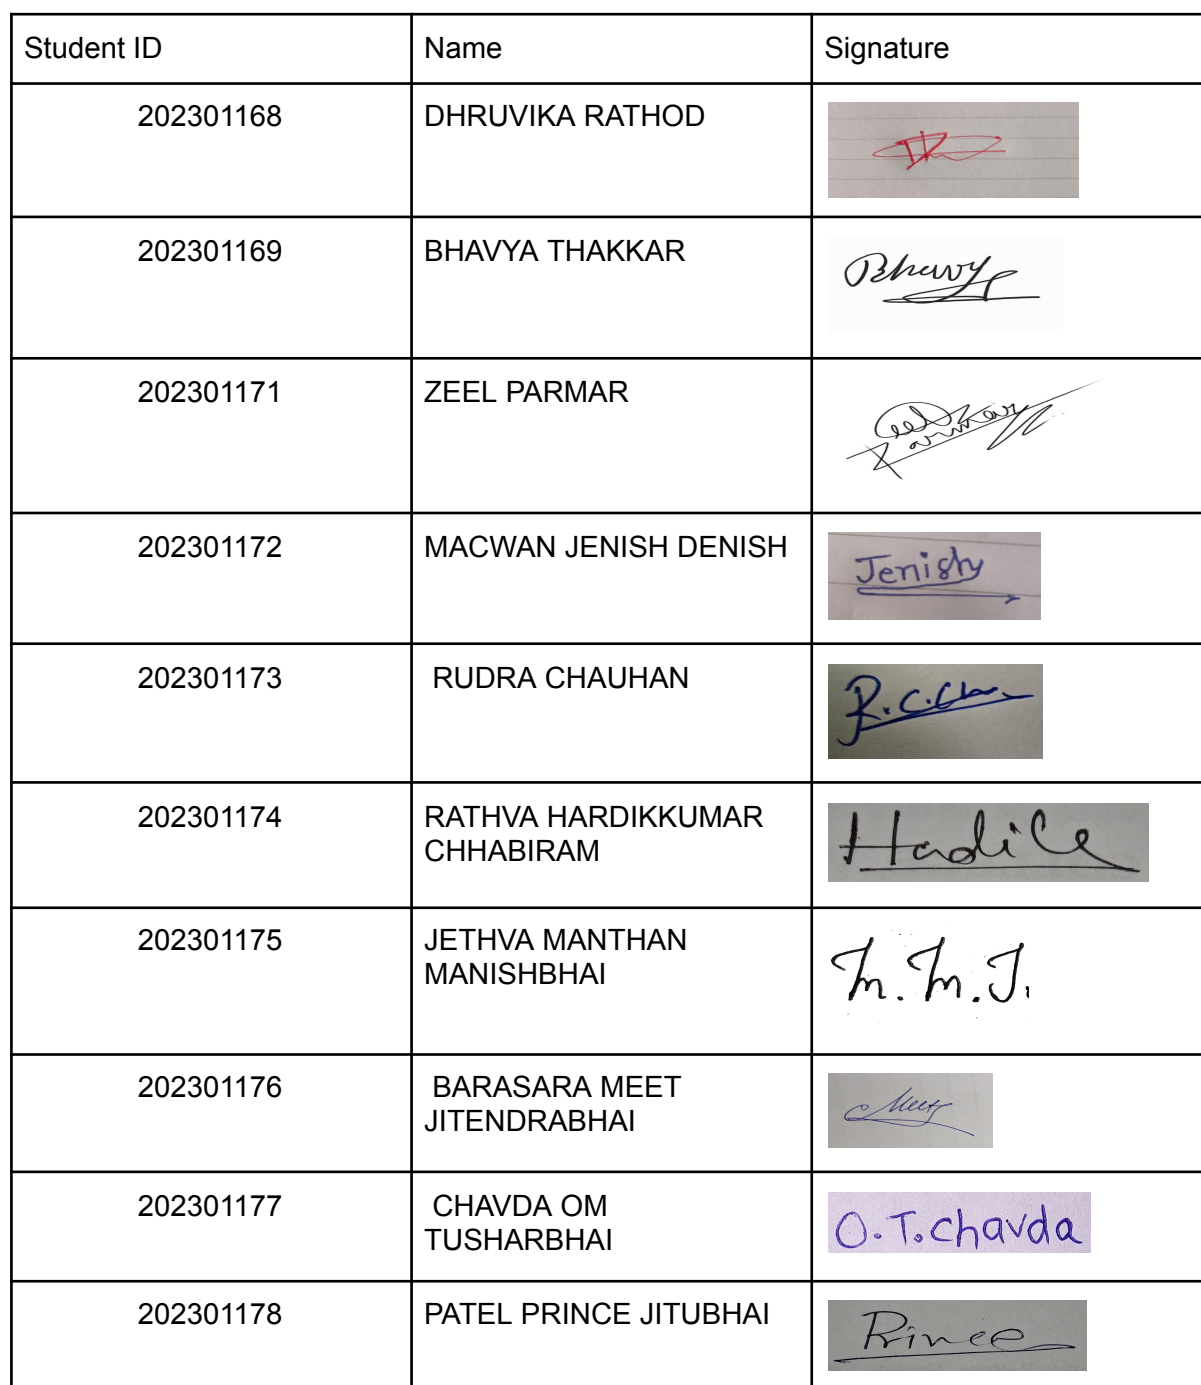 Student ID Name Signature
202301168 DHRUVIKA RATHOD
202301169 BHAVYA THAKKAR Bhavy
202301171 ZEEL PARMAR Zeel
Parmar
202301172 MACWAN JENISH DENISH Jenish
202301173 RUDRA CHAUHAN R.C.Ch.
202301174 RATHVA HARDIKKUMAR Hardik
CHHABIRAM
202301175 JETHVA MANTHAN M.M.J.
MANISHBHAI
202301176 BARASARA MEET Meet
JITENDRABHAI
202301177 CHAVDA OM O.T.chavda
TUSHARBHAI
202301178 PATEL PRINCE JITUBHAI Prince